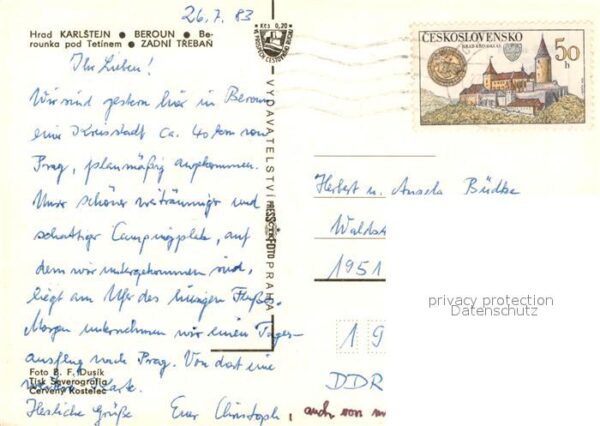 26.7.83
Hrad KARLŠTEJN ● BEROUN ● Be-
rounka pod Tetínem ● ZADNÍ TŘEBAŇ
Kčs 0,20
Ihr Lieben!
Wir sind gestern hier in Beroun
eine Kreisstadt ca. 40 km von
Prag, planmäßig angekommen.
Unser schöner weiträumiger und
schattiger Campingplatz, auf
dem wir untergekommen sind,
liegt am Ufer des hiesigen Flußes.
Morgen unternehmen wir einen Tages-
ausflug nach Prag. Von dort eine
weitere Karte.
Herzliche Grüße Euer Christoph, auch von
Foto B. F. Dusík
Tisk Severografia
Červený Kostelec
VYDAVATELSTVÍ PRESSFOTO PRAHA
ČESKOSLOVENSKO
50 h
Herbert u. Angela Büdke
1951
19
DDR
privacy protection
Datenschutz